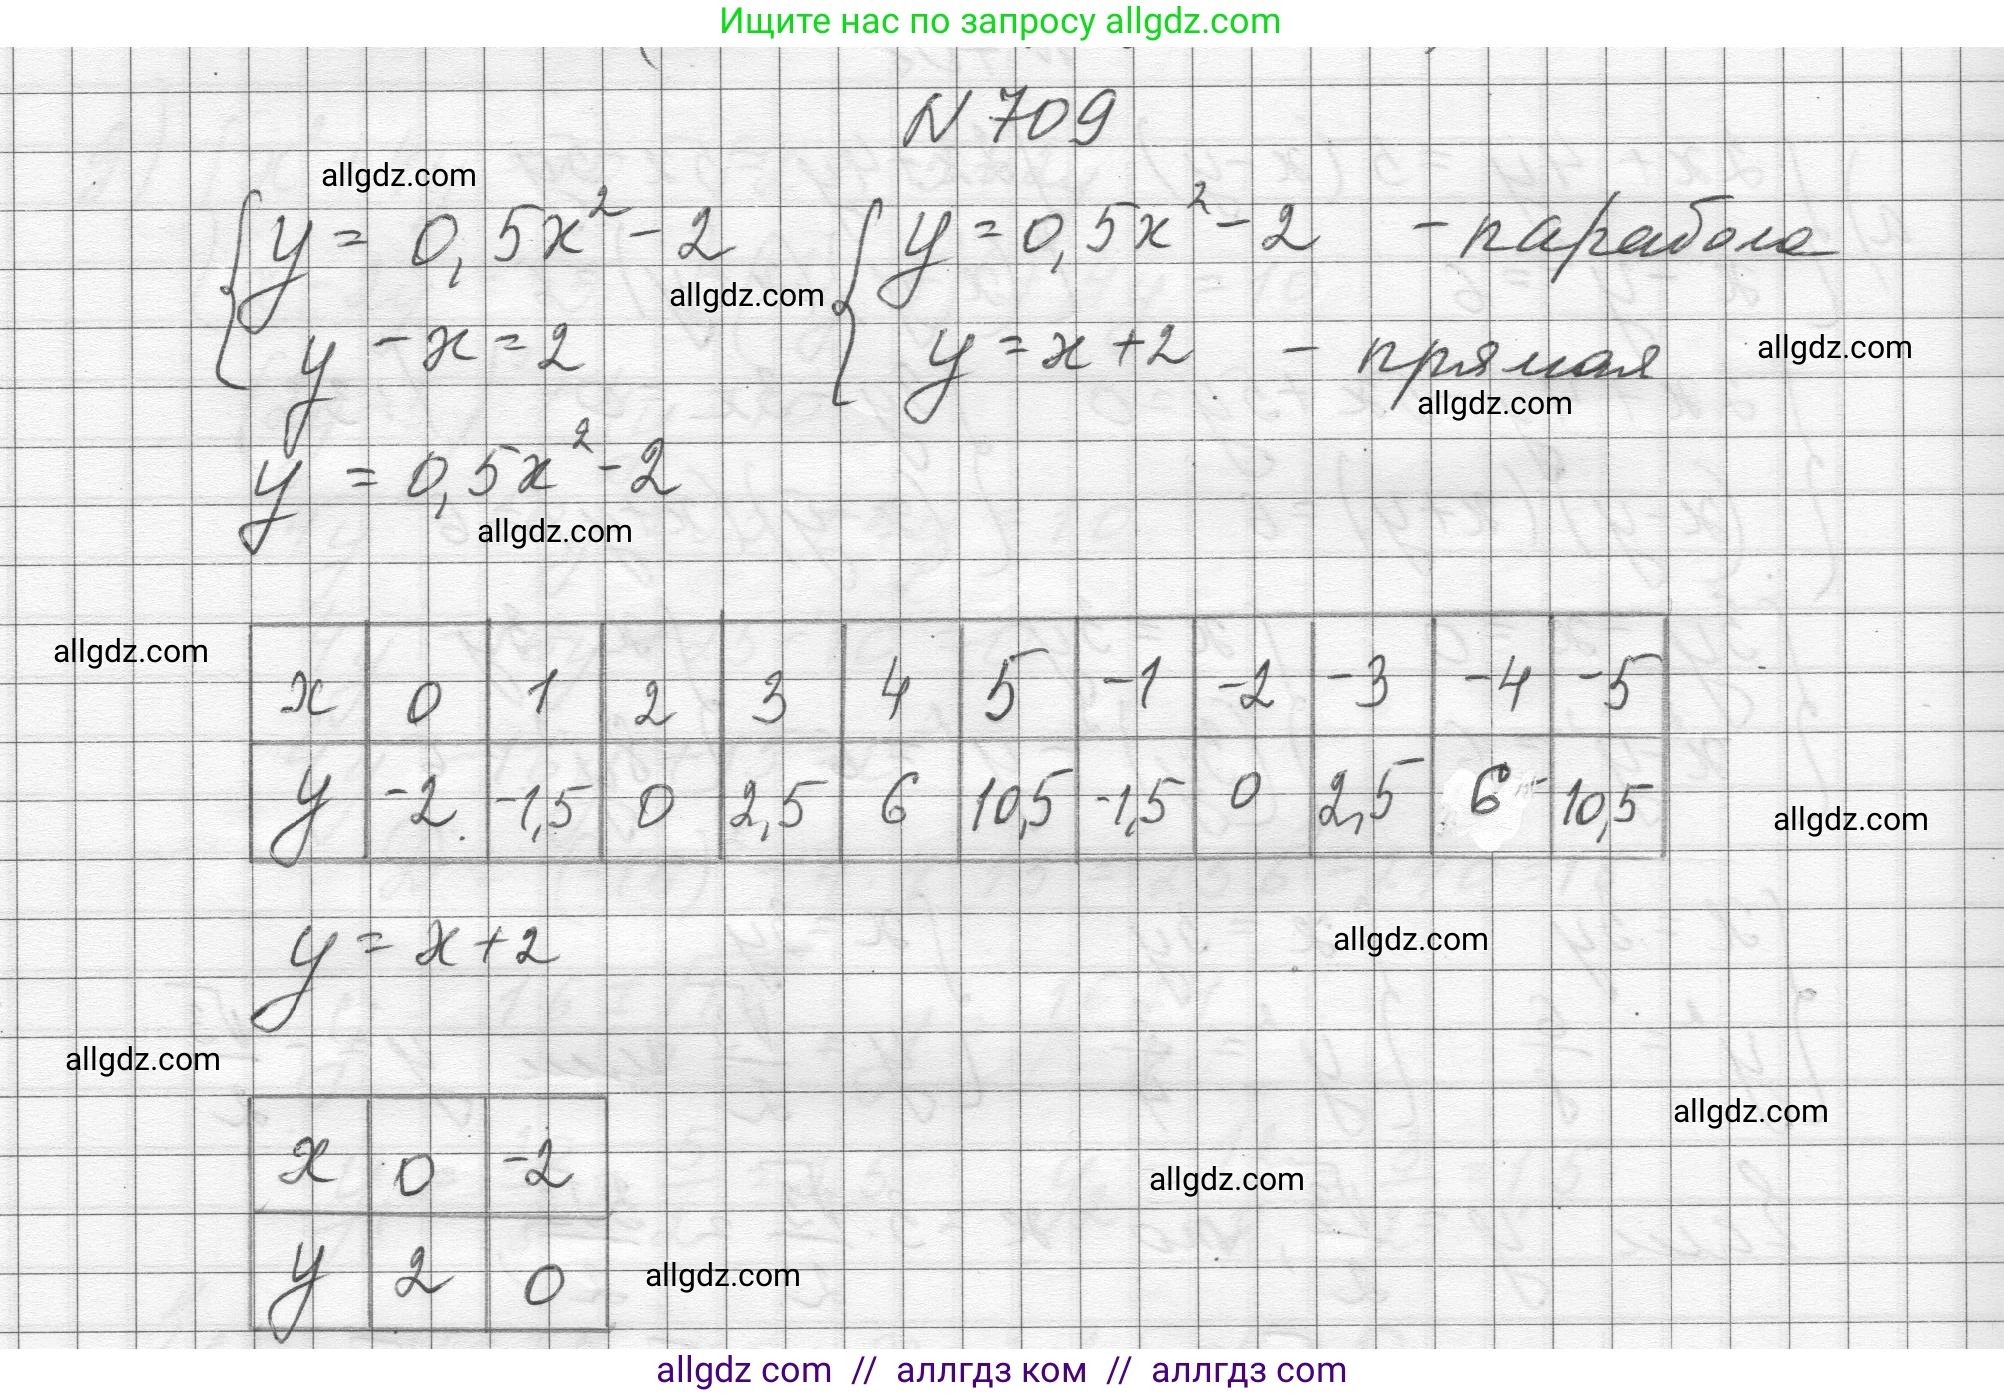 Ищите нас по запросу allgdz.com
N 709
allgdz.com
{ y = 0,5x² - 2 { y = 0,5x² - 2 - парабола
allgdz.com
y - x = 2 y = x + 2 - прямая
allgdz.com
allgdz.com
y = 0,5x² - 2
allgdz.com
allgdz.com
x 0 1 2 3 4 5 -1 -2 -3 -4 -5
y -2 -1,5 0 2,5 6 10,5 -1,5 0 2,5 6 10,5
allgdz.com
y = x + 2
allgdz.com
allgdz.com
allgdz.com
x 0 -2
allgdz.com
y 2 0
allgdz.com
allgdz com // аллгдз ком // аллгдз com